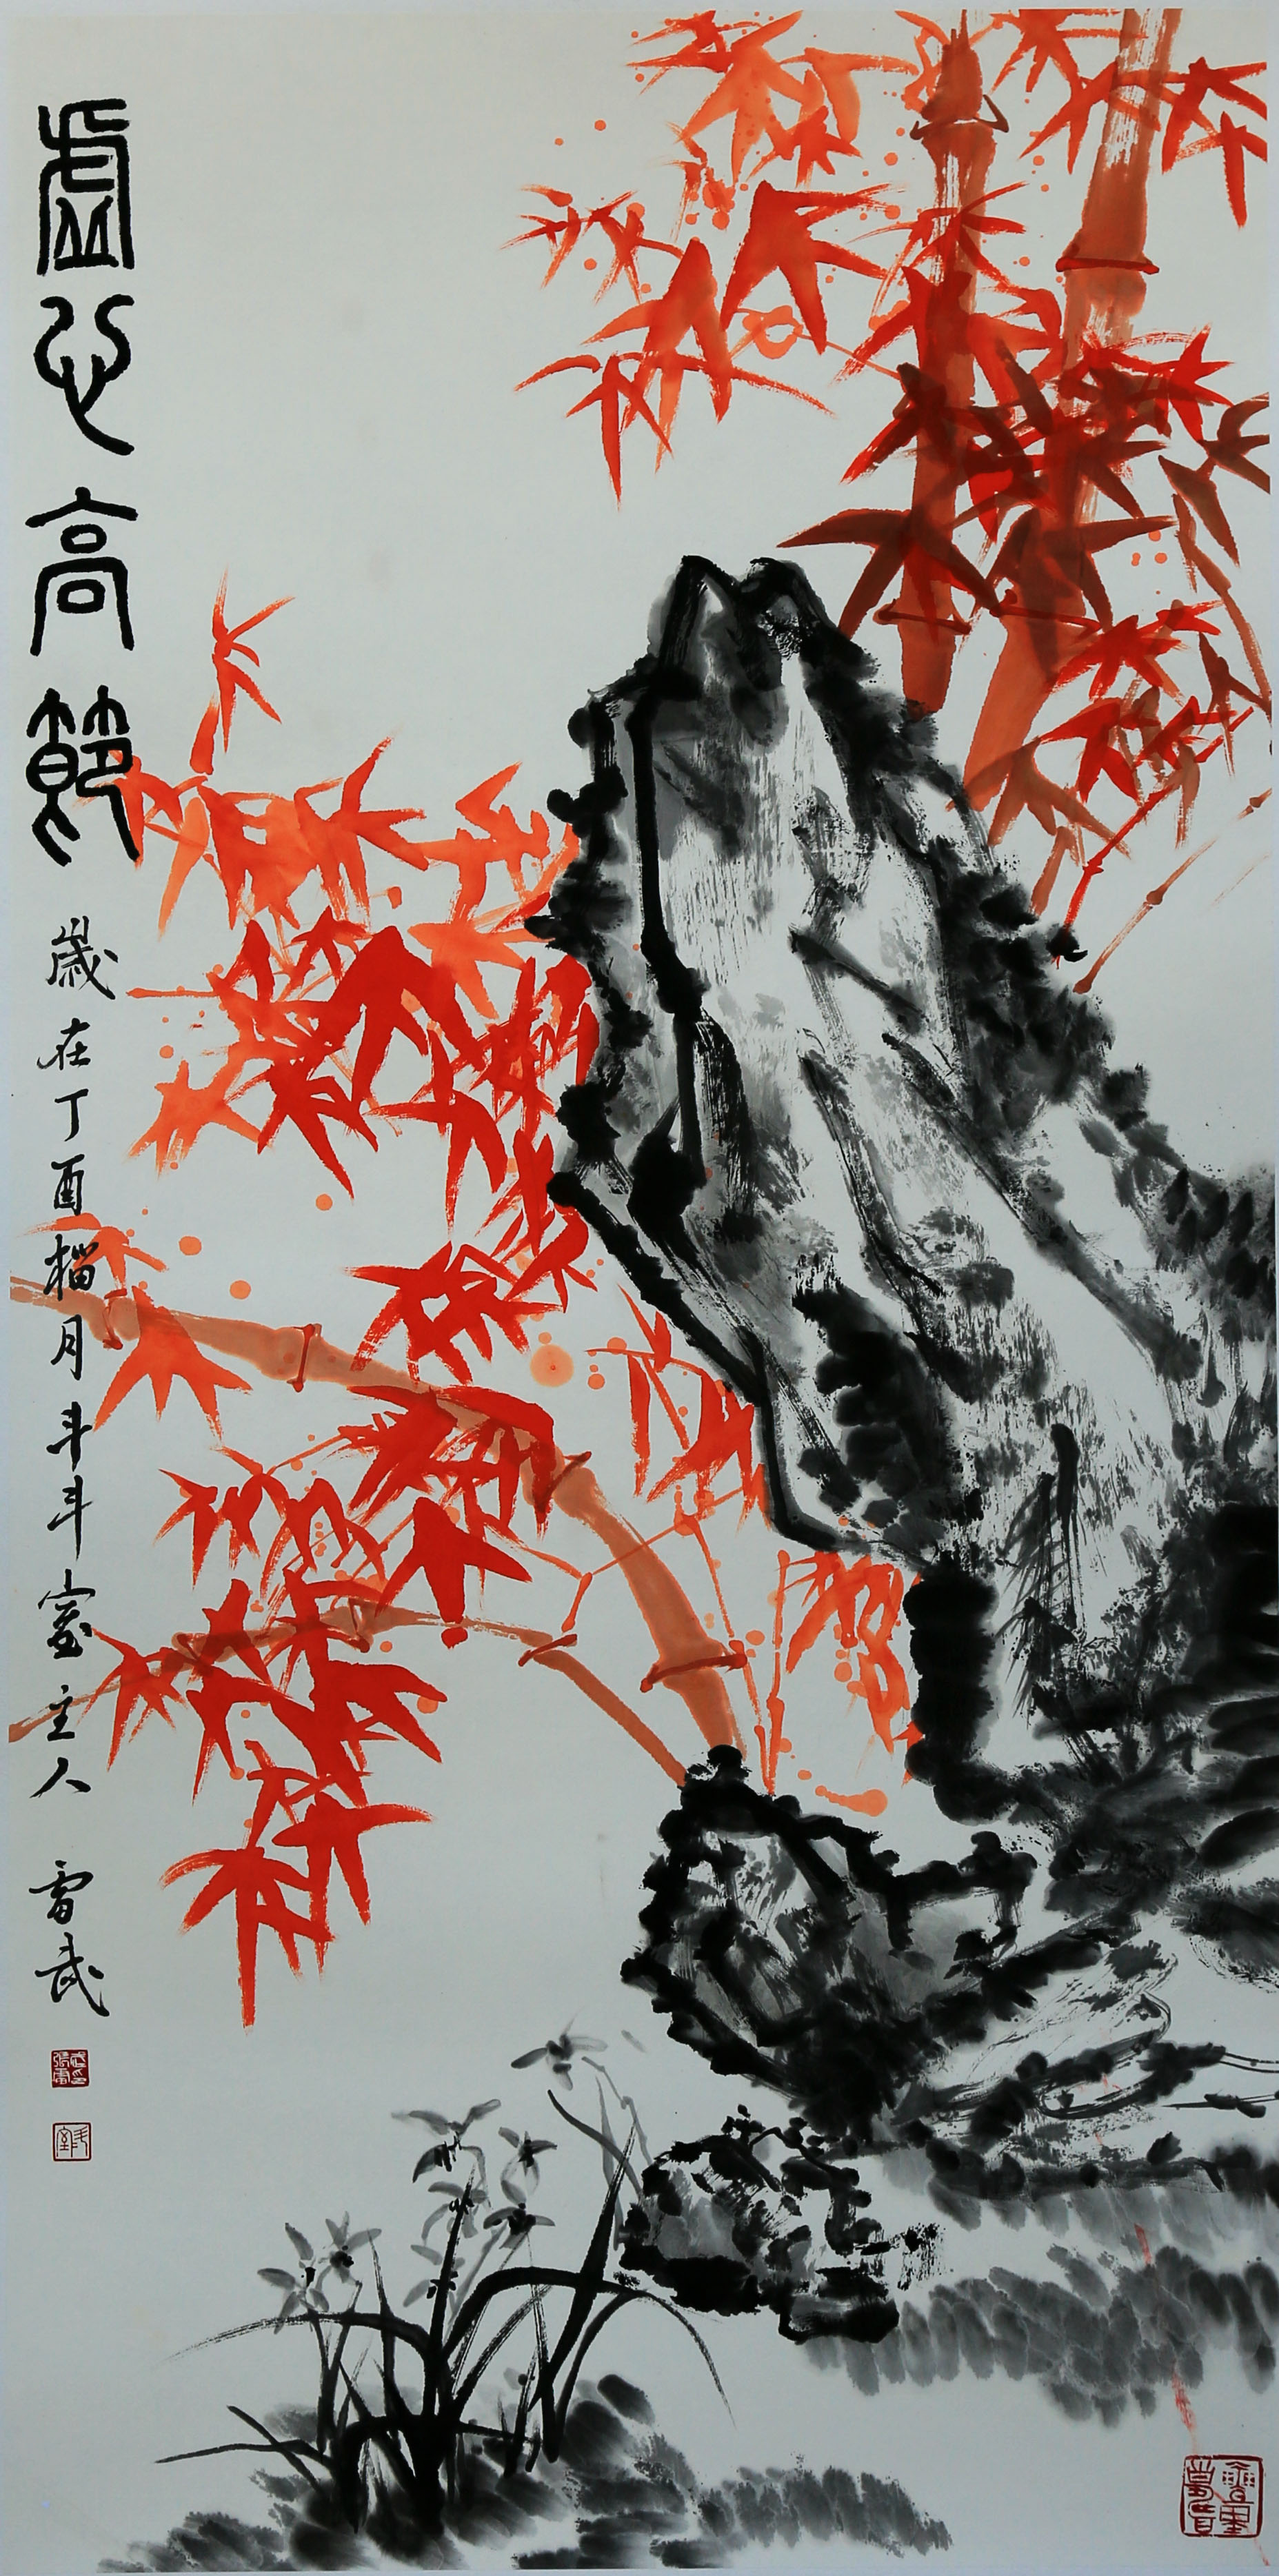 虚心高節
歲在丁酉榴月斗斗室主人
雷武